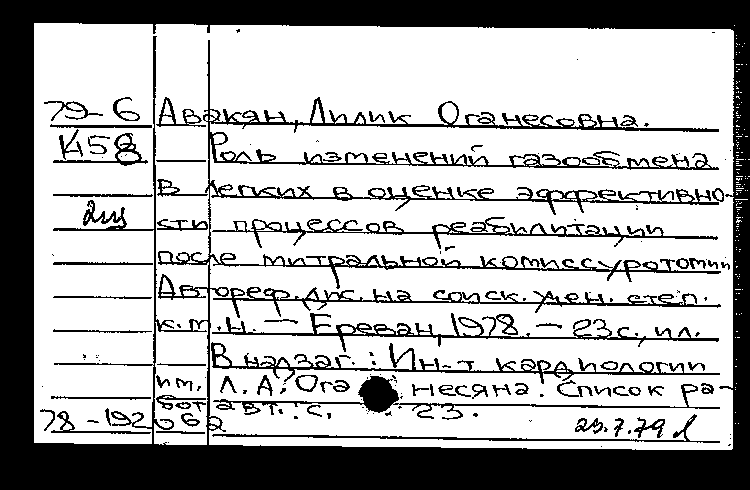 79-6 Авакян, Лилик Оганесовна.
К58 Роль изменений газообмена
в легких в оценке эффективно-
2щ сти процессов реабилитации
после митральной комиссуротомии
Автореф. дис. на соиск. учен. степ.
к.м.н. — Ереван, 1978. — 23 с., ил.
В надзаг.: Ин-т кардиологии
им. Л. А. Оганесяна. Список ра-
бот авт.: с. 23.
78-192062 23.7.79